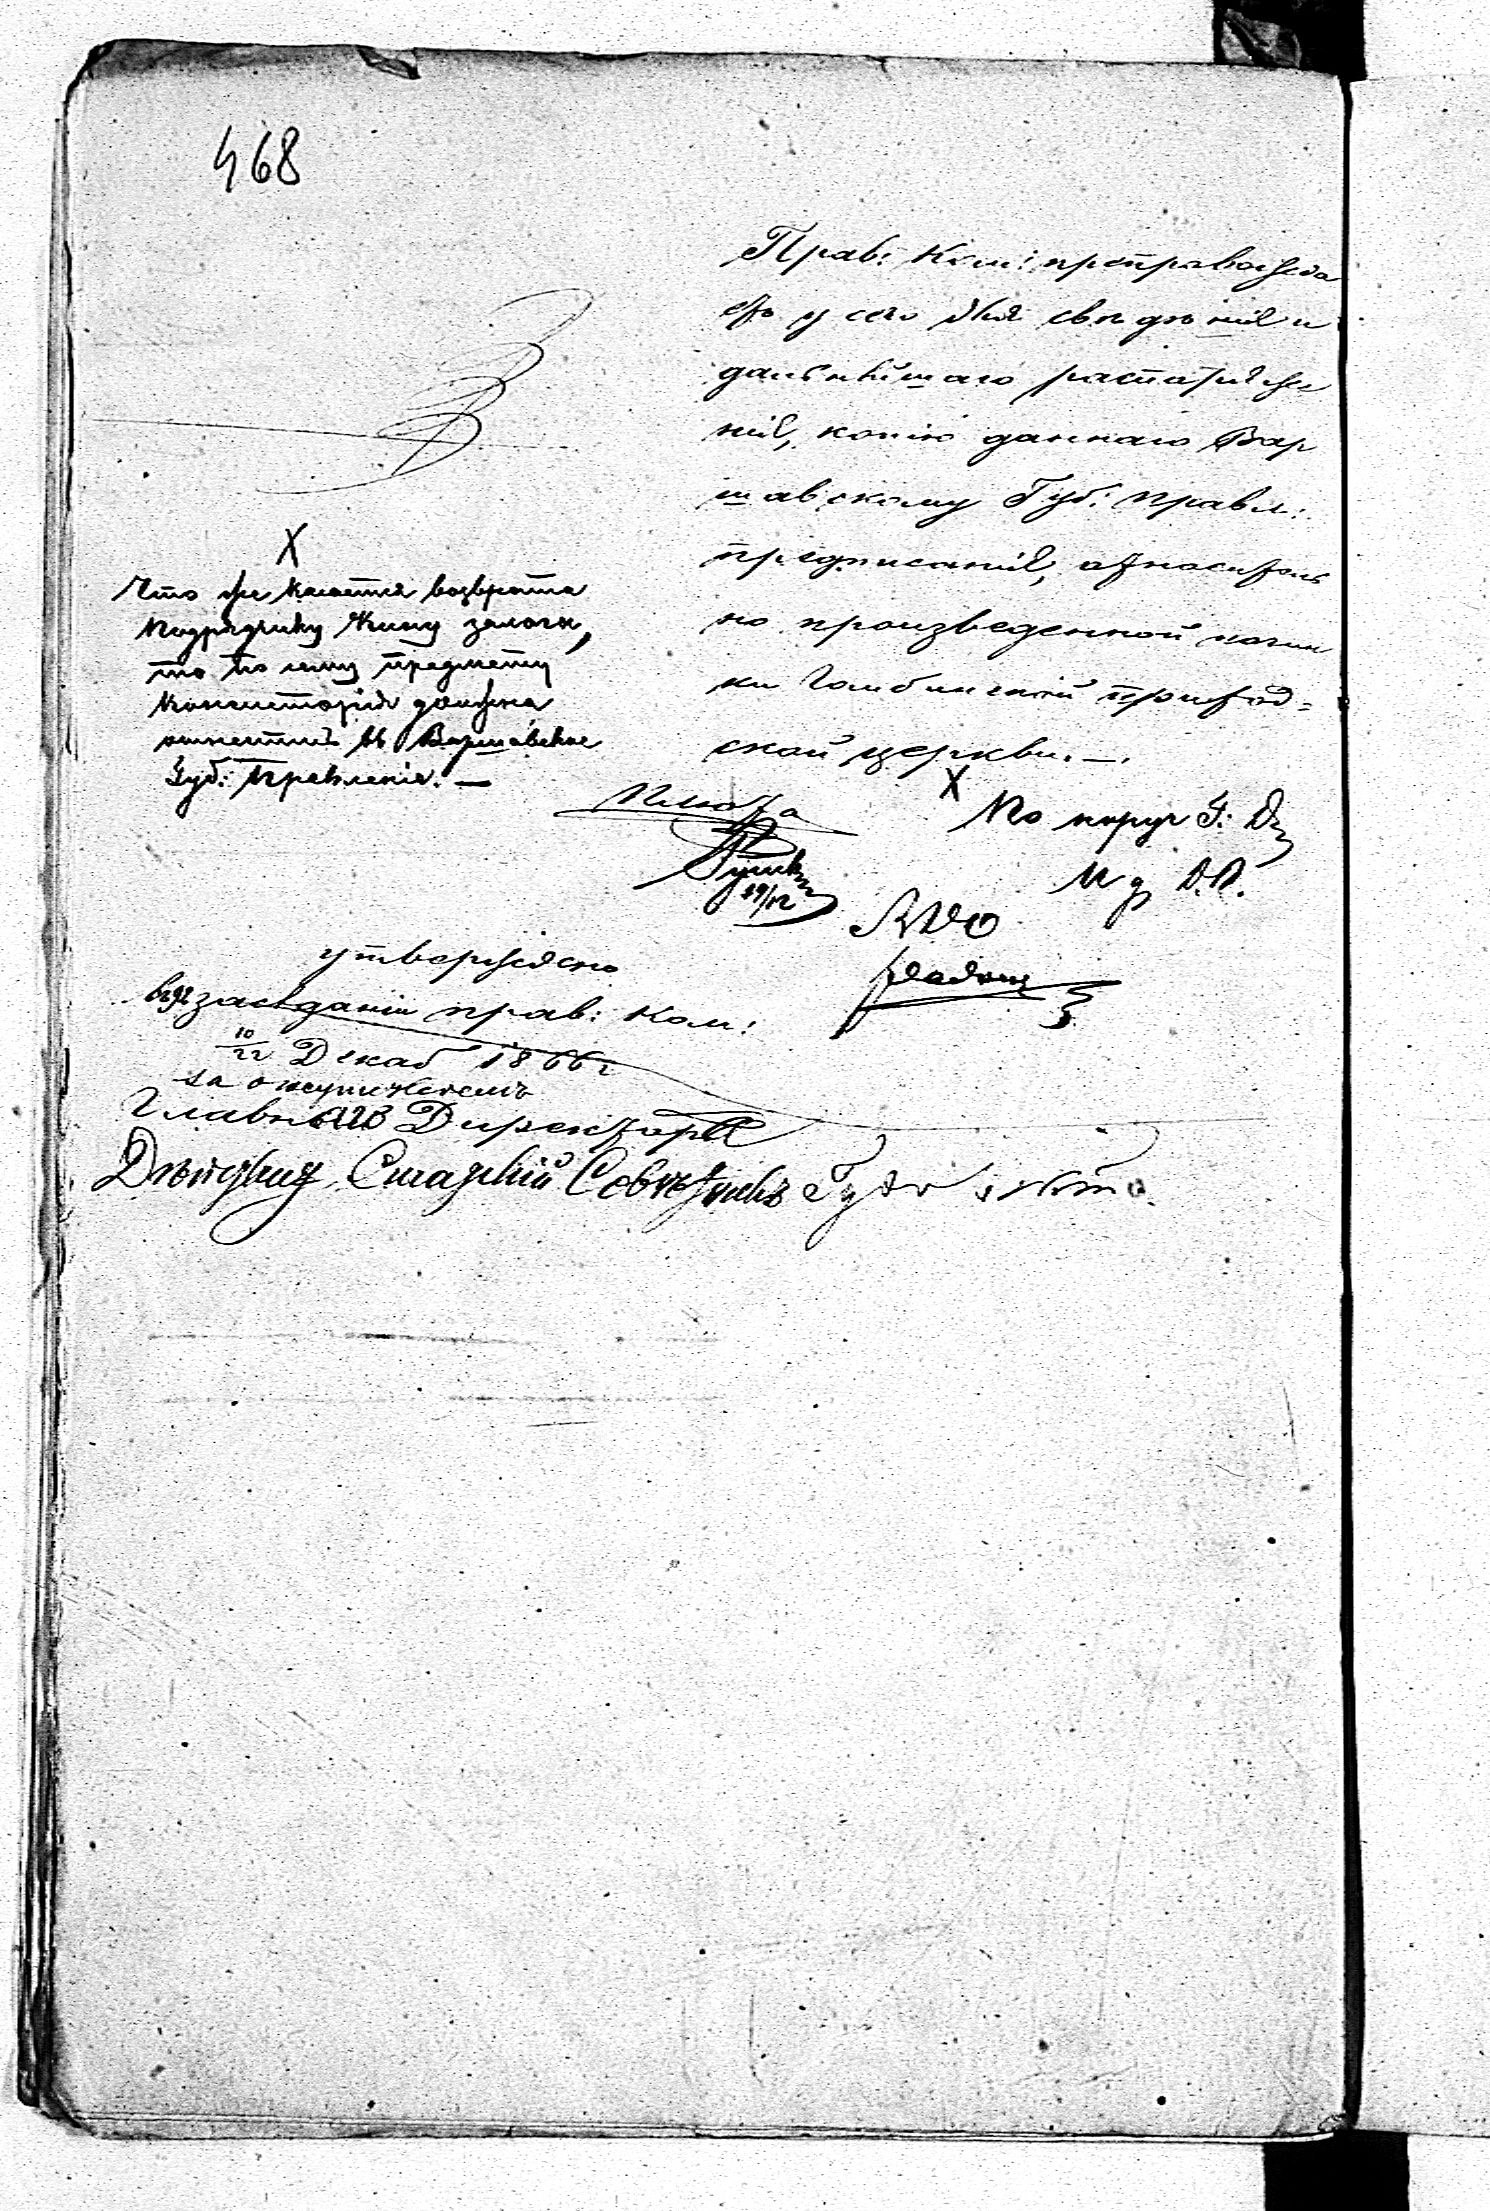 468
Прав: Ком: препровожда
етъ у сего для свѣдѣнія и
дальнѣйшаго распоряже
нія, копію даннаго Вар
шавскому Губ: Правл:
предписанія, относитель
но произведенной почин
ки Гомбинской приход=
ской церкви. —
X
X
Что же касается возврата
подрядчику Кину залога,
то по сему предмету
Консисторія должна
отнестись въ Варшавское
Губ: Правленіе. —
По поруч Г: Д
И д Д.О.
19/12
утверждено
въ засѣданіи прав: Ком:
10/22 Декаб 1866 г
за отсутствіемъ
Главнаго Директора
Дѣйствит Статскій Совѣтникъ